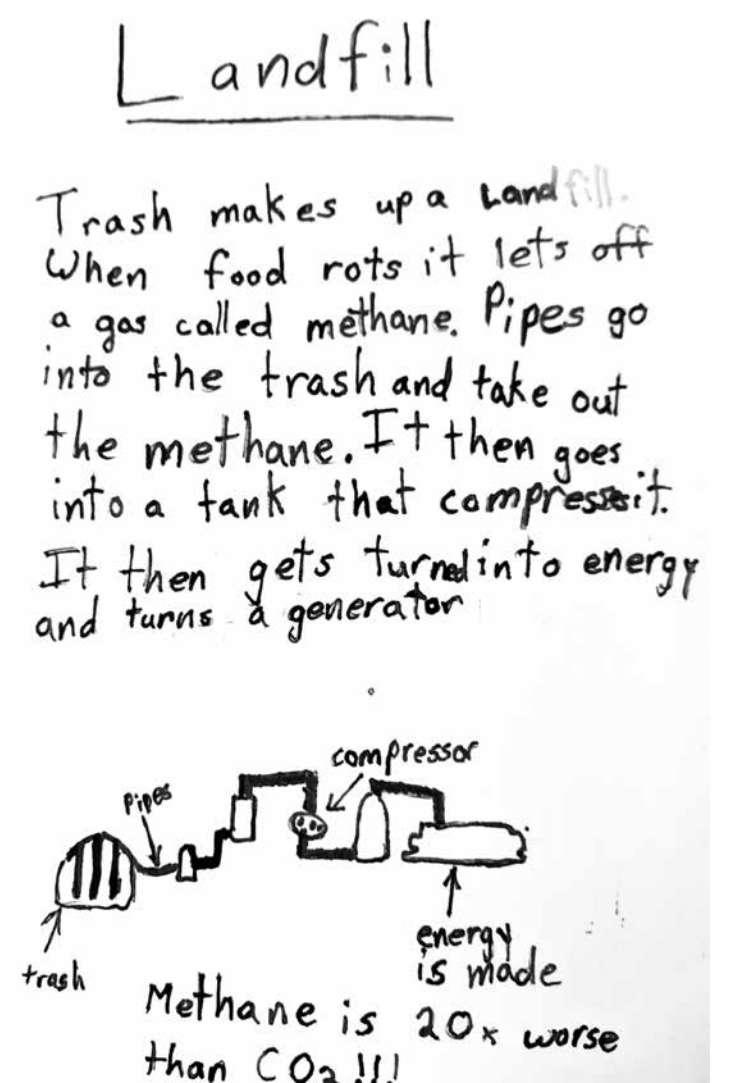 Landfill
Trash makes up a Landfill.
When food rots it lets off
a gas called methane. Pipes go
into the trash and take out
the methane. It then goes
into a tank that compresses it.
It then gets turned into energy
and turns a generator
compressor
pipes
trash
energy
is made
Methane is 20x worse
than CO2!!!